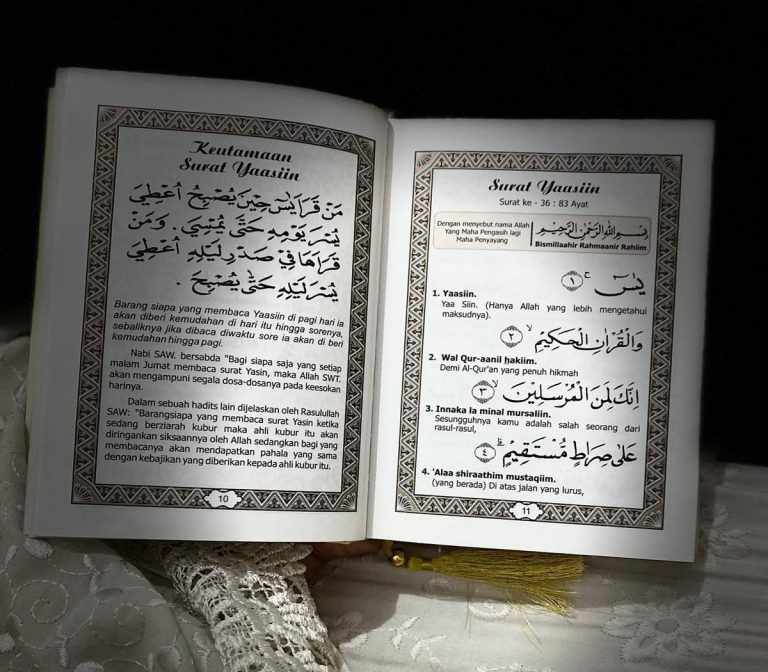 Keutamaan
Surat Yaasiin
مَنْ قَرَأَ يٰسٓ حِيْنَ يُصْبِحُ اُعْطِيَ
يُسْرَ يَوْمِهِ حَتَّى يُمْسِيَ . وَمَنْ
قَرَأَهَا فِيْ صَدْرِ لَيْلِهِ اُعْطِيَ
يُسْرَ لَيْلِهِ حَتَّى يُصْبِحَ .
Barang siapa yang membaca Yaasiin di pagi hari ia
akan diberi kemudahan di hari itu hingga sorenya,
sebaliknya jika dibaca diwaktu sore ia akan di beri
kemudahan hingga pagi.
Nabi SAW. bersabda "Bagi siapa saja yang setiap
malam Jumat membaca surat Yasin, maka Allah SWT.
akan mengampuni segala dosa-dosanya pada keesokan
harinya.
Dalam sebuah hadits lain dijelaskan oleh Rasulullah
SAW: "Barangsiapa yang membaca surat Yasin ketika
sedang berziarah kubur maka ahli kubur itu akan
diringankan siksaannya oleh Allah sedangkan bagi yang
membacanya akan mendapatkan pahala yang sama
dengan kebajikan yang diberikan kepada ahli kubur itu.
10
Surat Yaasiin
Surat ke - 36 : 83 Ayat
Dengan menyebut nama Allah
Yang Maha Pengasih lagi
Maha Penyayang
بِسْمِ اللهِ الرَّحْمٰنِ الرَّحِيْمِ
Bismillaahir Rahmaanir Rahiim
يٰسٓ ۚ ١
1. Yaasiin.
Yaa Siin. (Hanya Allah yang lebih mengetahui
maksudnya).
وَالْقُرْاٰنِ الْحَكِيْمِ ۙ ٢
2. Wal Qur-aanil hakiim.
Demi Al-Qur'an yang penuh hikmah
اِنَّكَ لَمِنَ الْمُرْسَلِيْنَ ۙ ٣
3. Innaka la minal mursaliin.
Sesungguhnya kamu adalah salah seorang dari
rasul-rasul,
عَلٰى صِرَاطٍ مُّسْتَقِيْمٍ ۗ ٤
4. 'Alaa shiraathim mustaqiim.
(yang berada) Di atas jalan yang lurus,
11